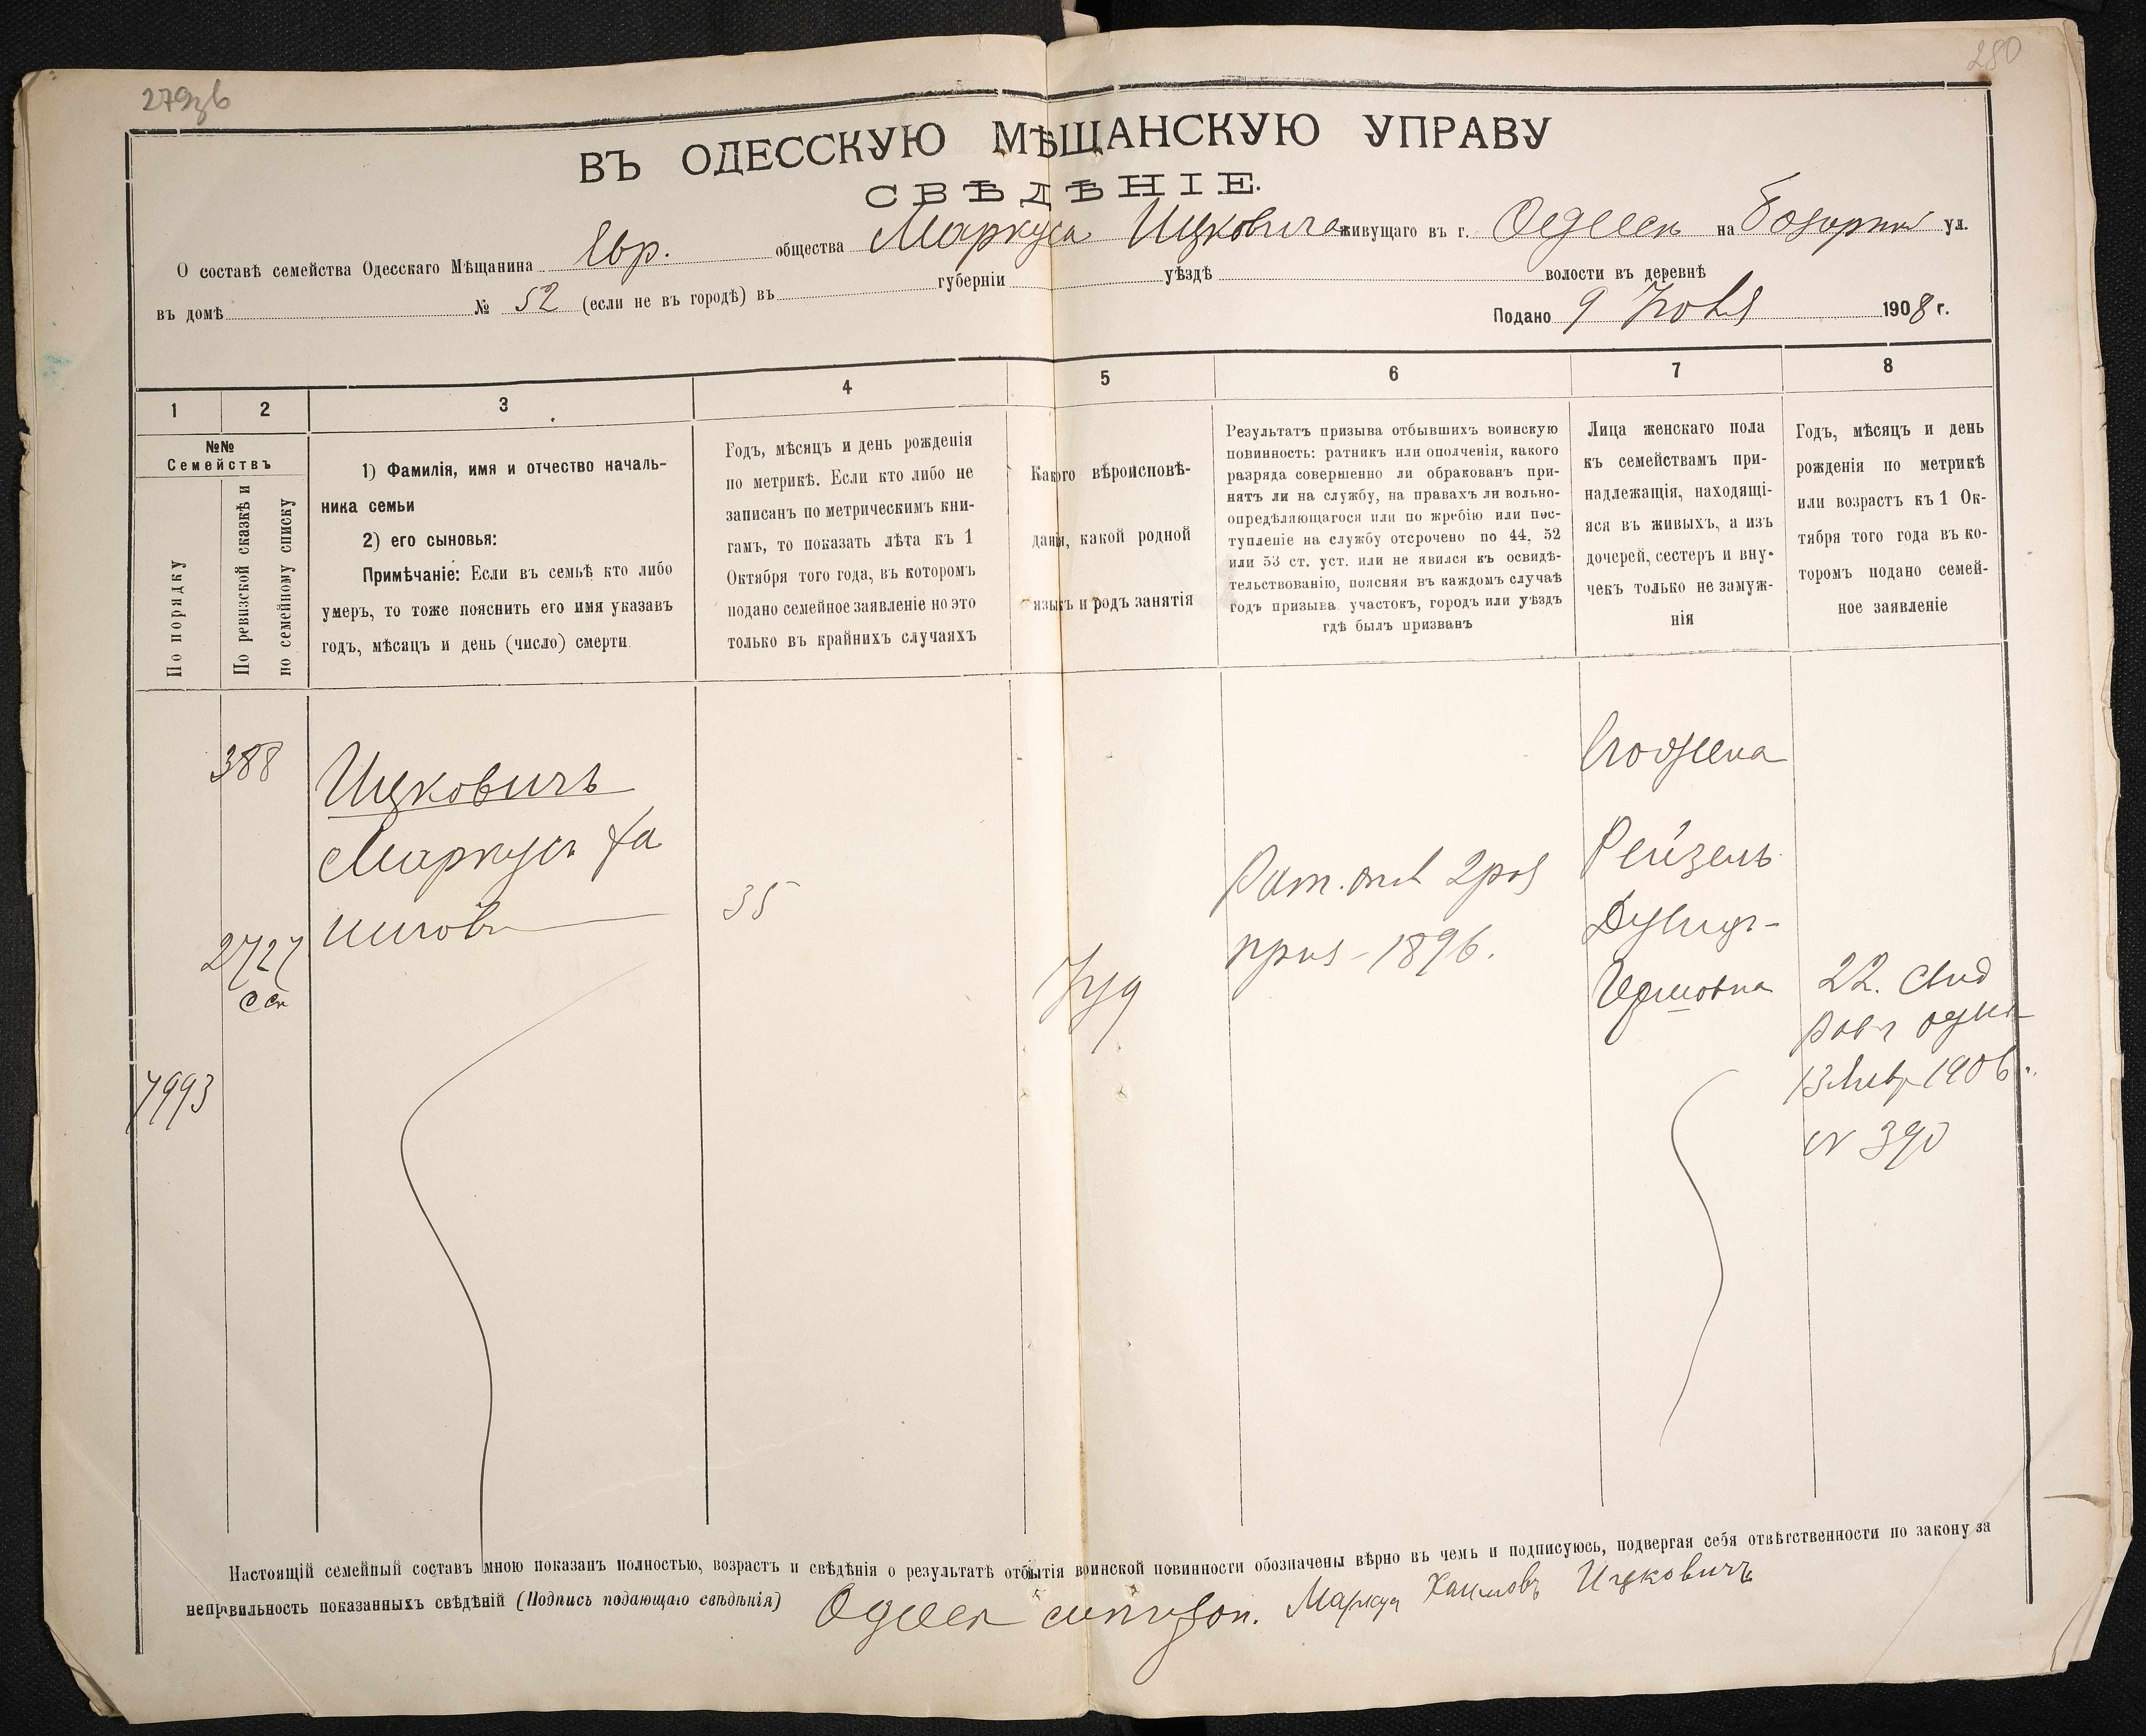 279зв
280
ВЪ ОДЕССКУЮ МѢЩАНСКУЮ УПРАВУ
СВѢДѢНІЕ.
О составѣ семейства Одесскаго Мѣщанина Евр. общества Маркуса Ицковича живущаго въ г. Одессѣ на Базарной ул.
въ домѣ № 52 (если не въ городѣ) въ губерніи уѣздѣ волости въ деревнѣ
Подано 9 1908 г.
1 2 3 4 5 6 7 8
№№
Семействъ
По порядку
По ревизской сказкѣ и
по семейному списку
1) Фамилія, имя и отчество началь-
ника семьи
2) его сыновья:
Примѣчаніе: Если въ семьѣ кто либо
умеръ, то тоже пояснить его имя указавъ
годъ, мѣсяцъ и день (число) смерти
Годъ, мѣсяцъ и день рожденія
по метрикѣ. Если кто либо не
записанъ по метрическимъ кни-
гамъ, то показать лѣта къ 1
Октября того года, въ которомъ
подано семейное заявленіе но это
только въ крайнихъ случаяхъ
Какого вѣроисповѣ-
данія, какой родной
языкъ и родъ занятія
Результатъ призыва отбывшихъ воинскую
повинность: ратникъ или ополченія, какого
разряда совершенно ли обракованъ при-
нятъ ли на службу, на правахъ ли вольно-
опредѣляющагося или по жребію или пос-
тупленіе на службу отсрочено по 44, 52
или 53 ст. уст. или не явился къ освидѣ-
тельствованію, поясняя въ каждомъ случаѣ
годъ призыва участокъ, городъ или уѣздъ
гдѣ былъ призванъ
Лица женскаго пола
къ семействамъ при-
надлежащія, находящі-
яся въ живыхъ, а изъ
дочерей, сестеръ и вну-
чекъ только не замуж-
нія
Годъ, мѣсяцъ и день
рожденія по метрикѣ
или возрастъ къ 1 Ок-
тября того года въ ко-
торомъ подано семей-
ное заявленіе
388
Ицковичъ
Маркусъ Ха
имовъ
35
2727
7993
Іуд
Рат. опол 2 раз
приз - 1896.
Его жена
Рейзель
Гершовна
22. Свид
13 Янв 1906 г.
№ 390
Настоящій семейный составъ мною показанъ полностью, возрастъ и свѣдѣнія о результатѣ отбытія воинской повинности обозначены вѣрно въ чемъ и подписуюсь, подвергая себя отвѣтственности по закону за
неправильность показанныхъ свѣдѣній (Подпись подающаго свѣдѣнія) Одесск Маркус Хаимовъ Ицковичъ